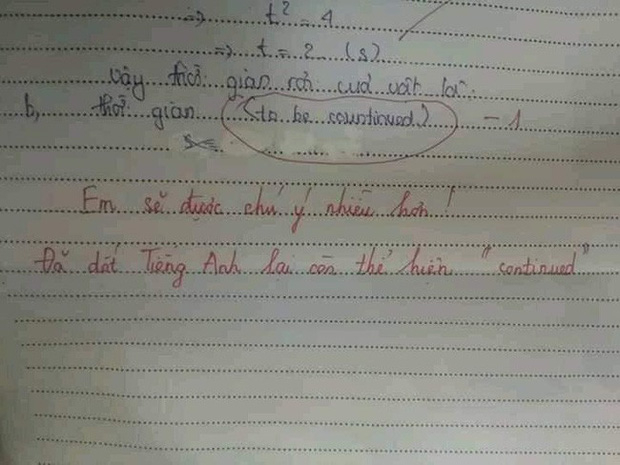 => t² = 4
=> t = 2 (s)
Vậy thời gian rơi của vật là:
b, thời gian (to be countinued) - 1
S =
Em sẽ được chú ý nhiều hơn!
Đã dốt Tiếng Anh lại còn thể hiện "continued"